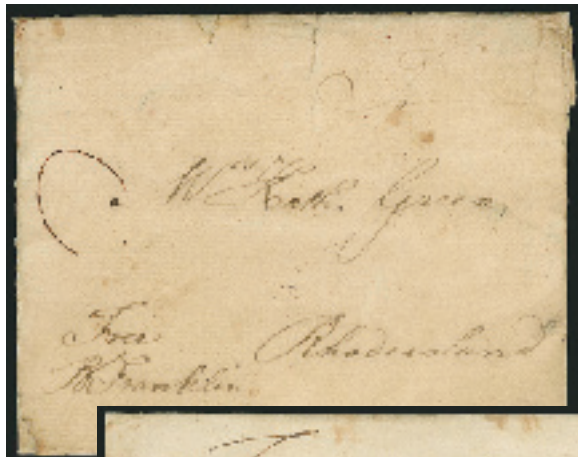 Kath. Green
Rhodeisland
Free
B Franklin